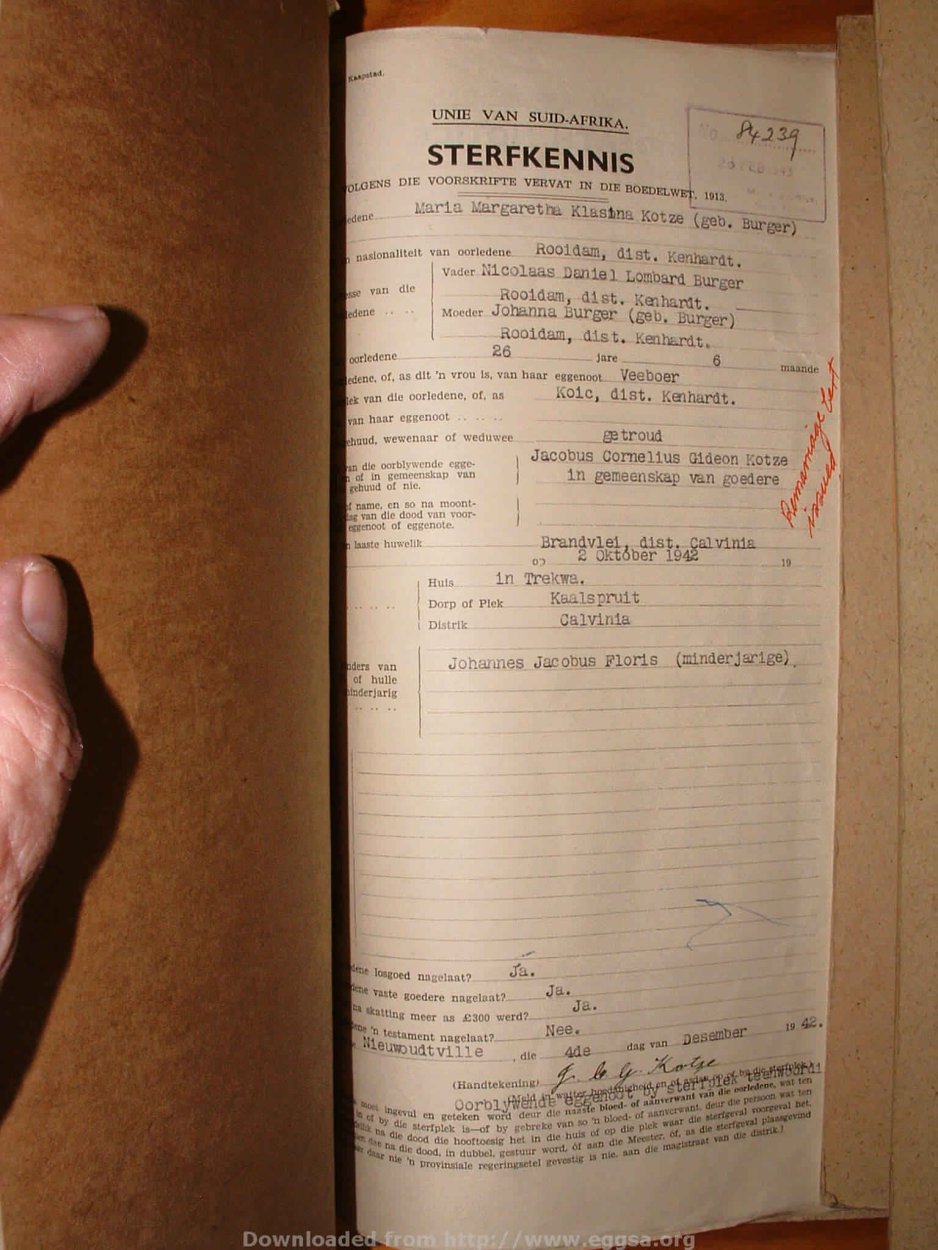 Kaapstad.
UNIE VAN SUID-AFRIKA.
No. 84239
STERFKENNIS
VOLGENS DIE VOORSKRIFTE VERVAT IN DIE BOEDELWET, 1913.
edene Maria Margaretha Klasina Kotze (geb. Burger)
n nasionaliteit van oorledene Rooidam, dist. Kenhardt.
Vader Nicolaas Daniel Lombard Burger
sse van die Rooidam, dist. Kenhardt.
ledene Moeder Johanna Burger (geb. Burger)
Rooidam, dist. Kenhardt.
oorledene 26 jare 6 maande
ledene, of, as dit 'n vrou is, van haar eggenoot Veeboer
lek van die oorledene, of, as Koic, dist. Kenhardt.
van haar eggenoot
ehuud, wewenaar of weduwee getroud
van die oorblywende egge- Jacobus Cornelius Gideon Kotze
n of in gemeenskap van in gemeenskap van goedere
gehuud of nie.
f name, en so na moont-
ag van die dood van voor-
eggenoot of eggenote.
Remarriage Cert
issued
n laaste huwelik Brandvlei, dist. Calvinia
op 2 Oktober 1942 19
Huis in Trekwa.
Dorp of Plek Kaalspruit
Distrik Calvinia
nders van Johannes Jacobus Floris (minderjarige).
of hulle
minderjarig
dene losgoed nagelaat? Ja.
dene vaste goedere nagelaat? Ja.
na skatting meer as £300 werd? Ja.
ene 'n testament nagelaat? Nee.
Nieuwoudtville, die 4de dag van Desember 1942.
(Handtekening) J. C. G. Kotze
Oorblywende eggenoot by sterfplek teenwoordi
moet ingevul en geteken word deur die naaste bloed- of aanverwant van die oorledene, wat ten
of by die sterfplek is—of by gebreke van so 'n bloed- of aanverwant, deur die persoon wat ten
na die dood die hooftoesig het in die huis of op die plek waar die sterfgeval voorgeval het.
dae na die dood, in dubbel, gestuur word, óf aan die Meester, óf, as die sterfgeval plaasgevind
daar nie 'n provinsiale regeringsetel gevestig is nie, aan die magistraat van die distrik.]
Downloaded from http://www.eggsa.org